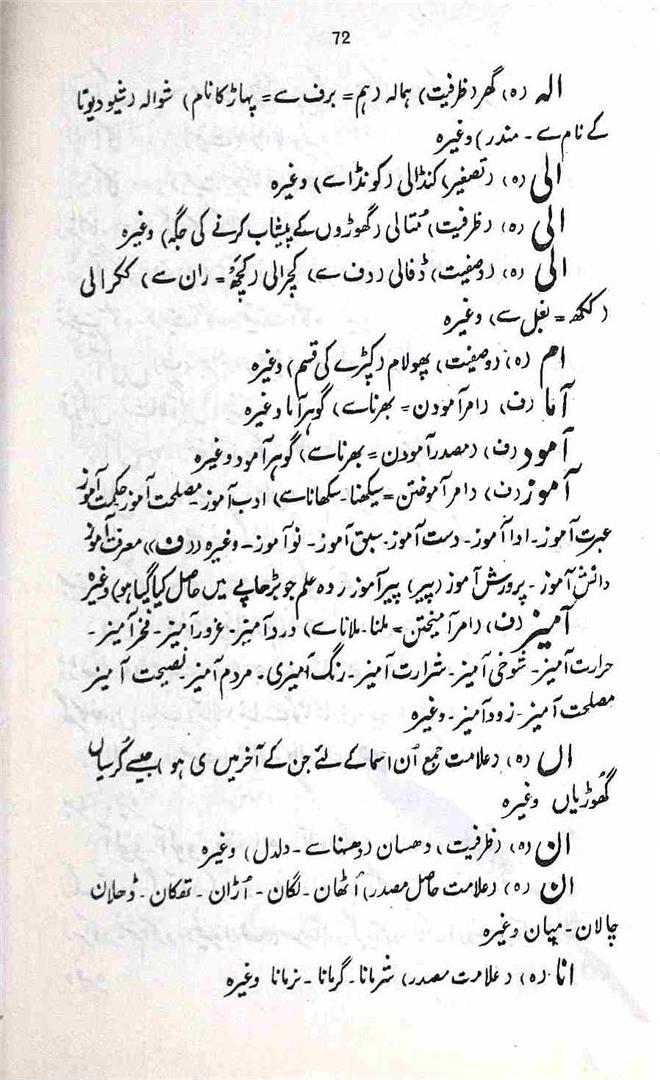 72
الہ (ہ) گھر (ظرفیت) ہمالہ (ہم = برف سے = پہاڑ کا نام) شوالہ (شیو دیوتا
کے نام سے - مندر) وغیرہ
الی (ہ) (تصغیر) کنڈالی (کونڈا سے) وغیرہ
الی (ہ) (ظرفیت) مُتالی (گھوڑوں کے پیشاب کرنے کی جگہ) وغیرہ
الی (ہ) (وصفیت) ڈفالی (دف سے) کچرالی (کچھ = ران سے) ککرالی
(ککھ = بغل سے) وغیرہ
ام (ہ) (وصفیت) پھولام (کپڑے کی قسم) وغیرہ
آما (ف) (امر آمودن = بھرنا سے) گوہر آما وغیرہ
آمود (ف) (مصدر آمودن = بھرنا سے) گوہر آمود وغیرہ
آموز (ف) (امر آموختن = سیکھنا - سکھانا سے) ادب آموز - مصلحت آموز حکمت آموز
عبرت آموز - ادا آموز - دست آموز - سبق آموز - نو آموز - وغیرہ (ف) معرفت آموز
دانش آموز - پرورش آموز (پیر) پیر آموز (وہ علم جو بڑھاپے میں حاصل کیا گیا ہو) وغیرہ
آمیز (ف) (امر آمیختن = ملنا - ملانا سے) درد آمیز - غرور آمیز - فخر آمیز -
حرارت آمیز - شوخی آمیز - شرارت آمیز - رنگ آمیزی - مردم آمیز - نصیحت آمیز
مصلحت آمیز - زود آمیز - وغیرہ
اں (ہ) (علامت جمع اُن اسما کے لئے جن کے آخر میں ی ہو) جیسے کُرسیاں
گھوڑیاں وغیرہ
ان (ہ) (ظرفیت) دھسان (دھسنا سے - دلدل) وغیرہ
ان (ہ) (علامت حاصل مصدر) اُٹھان - لگان - اُڑان - تھکان - ڈھلان
چالان - میان وغیرہ
انا (ہ) (علامت مصدر) شرمانا - گرمانا - نرمانا وغیرہ